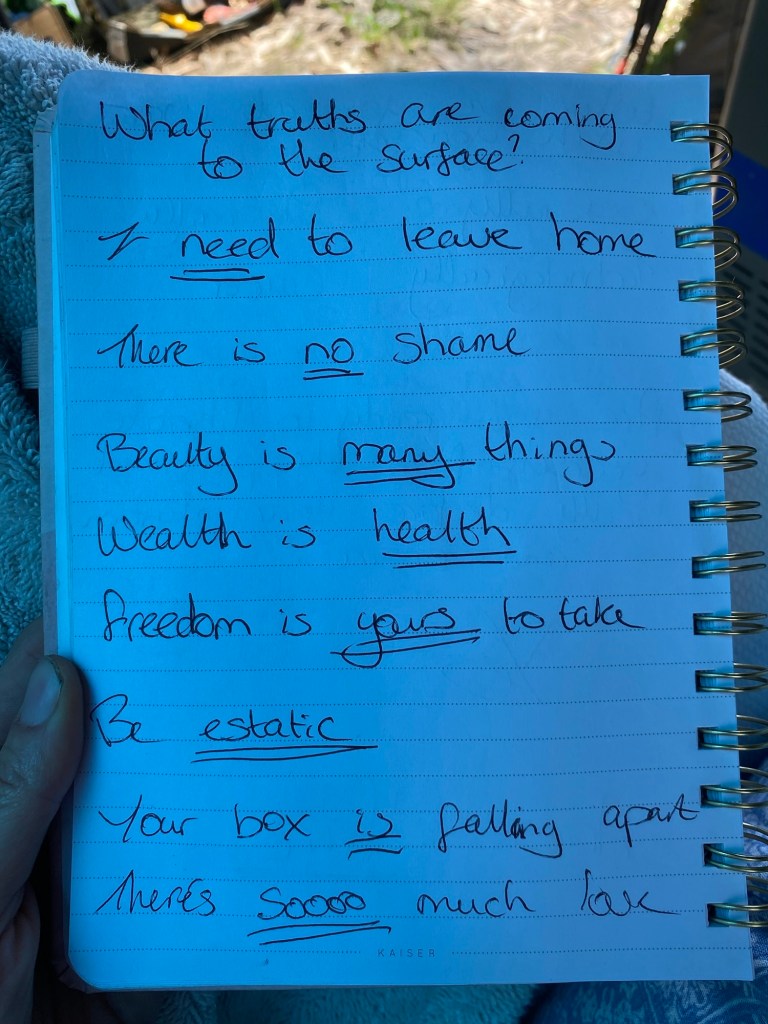 What truths are coming
to the surface?
I need to leave home
There is no shame
Beauty is many things
Wealth is health
freedom is yours to take
Be estatic
Your box is falling apart
There's Soooo much love
KAISER